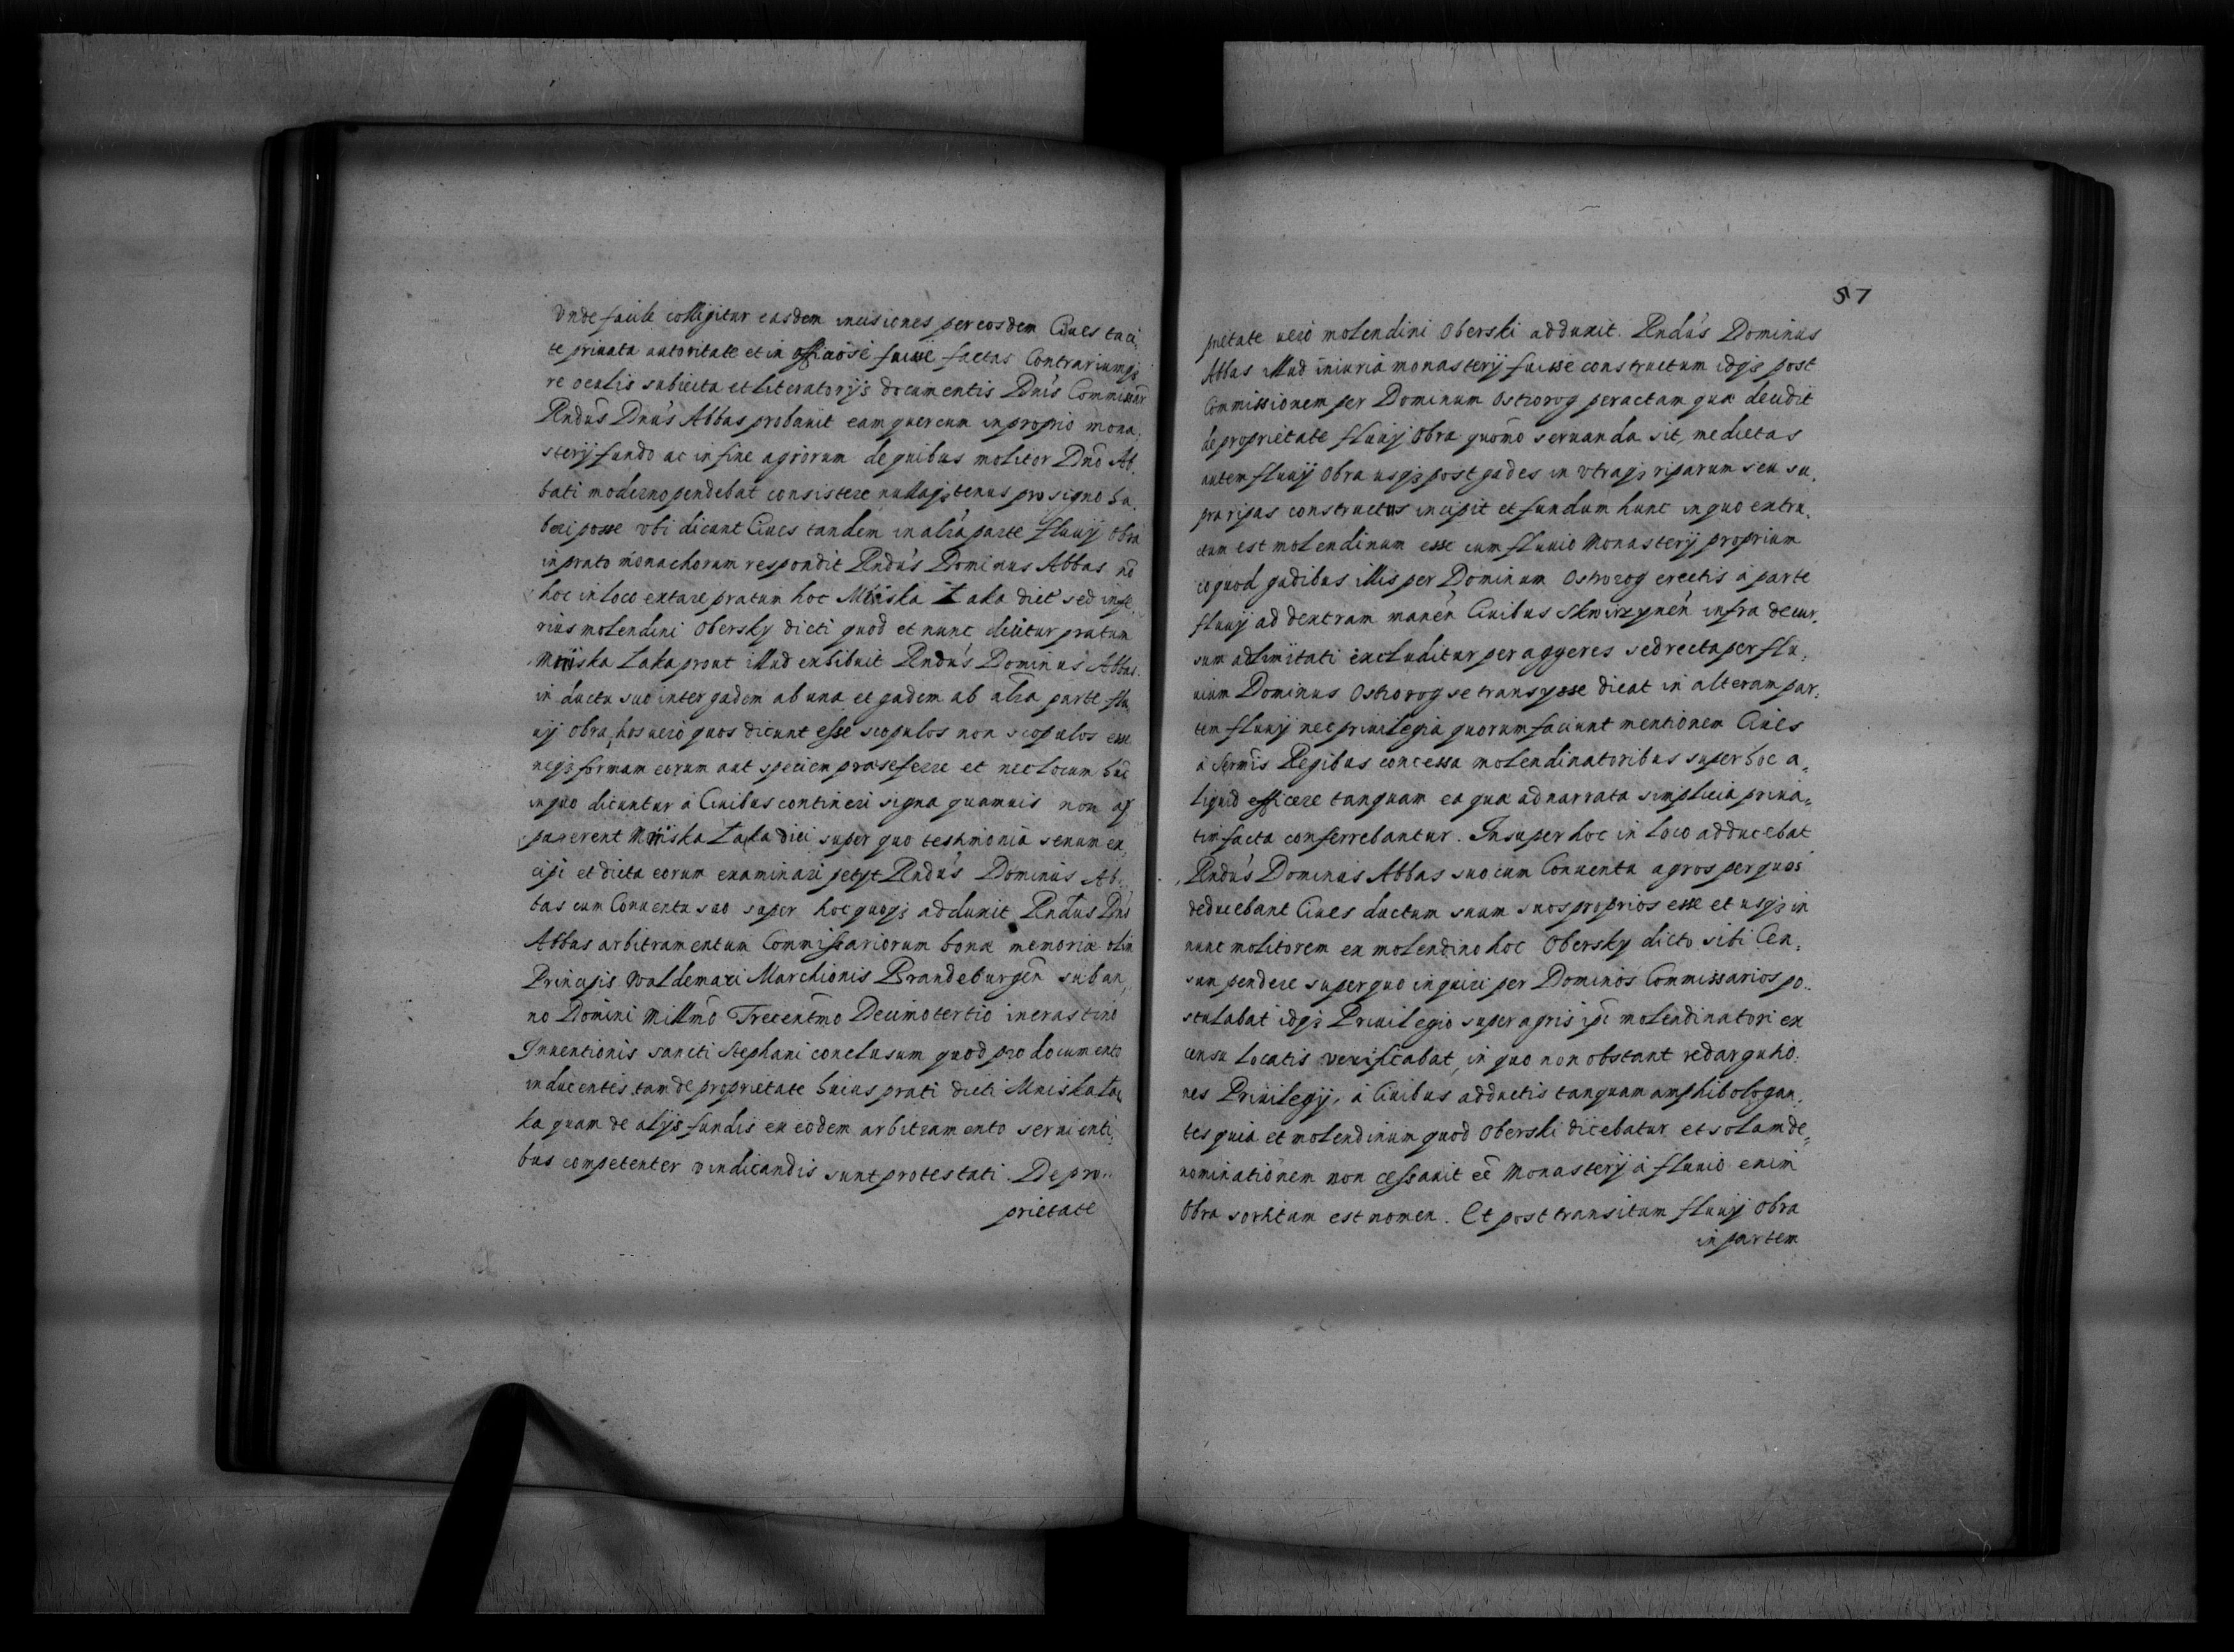 Vnde facile colligitur easdem incisiones per eosdem Ciues taci,
te priuata autoritate et in officiose fuisse factas Contrariumqȝ
re oculis subiecta et literatorijs documentis Dnis Commissar
Rndus Dnus Abbas probauit eam quercum in proprio mona,
sterij fundo ac in fine agrorum de quibus molitor Dno Ab,
bati moderno pendebat consistere nullaqȝ tenus pro signo ha,
beri posse vbi dicunt Ciues tandem in alia parte fluuij Obra
in prato monachorum respondit Rndus Dominus Abbas no
hoc in loco extare pratum hoc Mniska Łaka dict sed infe,
rius molendini Obersky dicti quod et nunc dicitur pratum
Mniska Łaka prout illud exhibuit Rndus Dominus Abbas
in ductu suo inter gadem ab una et gadem ab alia parte flu,
uij Obra, hos vero quos dicunt esse scopulos non scopulos esse
neqȝ formam eorum aut speciem praeseferre et nec locum huc
in quo dicuntur à Ciuibus contineri signa quamuis non ap
parerent Mniska Łaka dici super quo testimonia senum ex,
cipi et dicta eorum examinari petijt Rndus Dominus Ab,
bas cum Conuentu suo super hoc quoqȝ adduxit Rndus Dnus
Abbas arbitramentum Commissariorum bonae memoriae olim
Principis Woldemari Marchionis Brandeburgen sub an,
no Domini Millmo Trecentmo Decimotertio in crastino
Inuentionis sancti Stephani conclusum quod pro documento
inducentes tam de proprietate huius prati dicti Mniska Ła,
ka quam de alijs fundis ex eodem arbitramento seruienti,
bus competenter vindicandis sunt protestati. De pro,,
prietate
57
prietate uero molendini Oberski adduxit. Rndus Dominus
Abbas illud iniuria monasterij fuisse constructum idqȝ post
Commissionem per Dominum Ostrorog peractam quae decidit
de proprietate fluuij Obra quomo seruanda sit, medietas
autem fluuij Obra usqȝ post gades in vtraqȝ riparum seu su,
pra ripas constructus incipit et fundum hunc in quo extru,
ctum est molendinum esse cum fluuio Monasterij proprium
eo quod gadibus illis per Dominum Ostrorog erectis à parte
fluuij ad dextram manen Ciuibus Skwirzynen infra decur,
sum adlimitati excluditur per aggeres sed recta per flu,
uium Dominus Ostrorog se transysse dicat in alteram par,
tem fluuij nec priuilegia quorum faciunt mentionem Ciues
à Sermis Regibus concessa molendinatoribus super hoc a,
liquid efficere tanquam ea quae ad narrata simplicia priua,
tim facta conferrebantur. Insuper hoc in loco adducebat
Rndus Dominus Abbas suo cum Conuentu agros per quos
deducebant Ciues ductum suum suos proprios esse et usqȝ in
nunc molitorem ex molendino hoc Obersky dicto sibi Cen,
sum pendere super quo inquiri per Dominos Commissarios po,
stulabat idqȝ Priuilegio super agris ipi molendinatori ex
censu locatis verificabat, in quo non obstant redargutio,
nes Priuilegij, à Ciuibus adductis tanquam amphibologan,
tes quia et molendinum quod Oberski dicebatur et solam de,
nominationem non cessauit ee Monasterij à fluuio enim
Obra sortitum est nomen. Et post transitum fluuij Obra
in partem